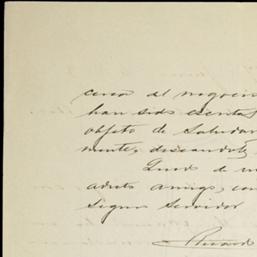 cerca del negocio
han sido escritas
objeto de saludar
mente, deseandole
Quedo de u
adicto amigo, con
Seguro Servidor
Ricard